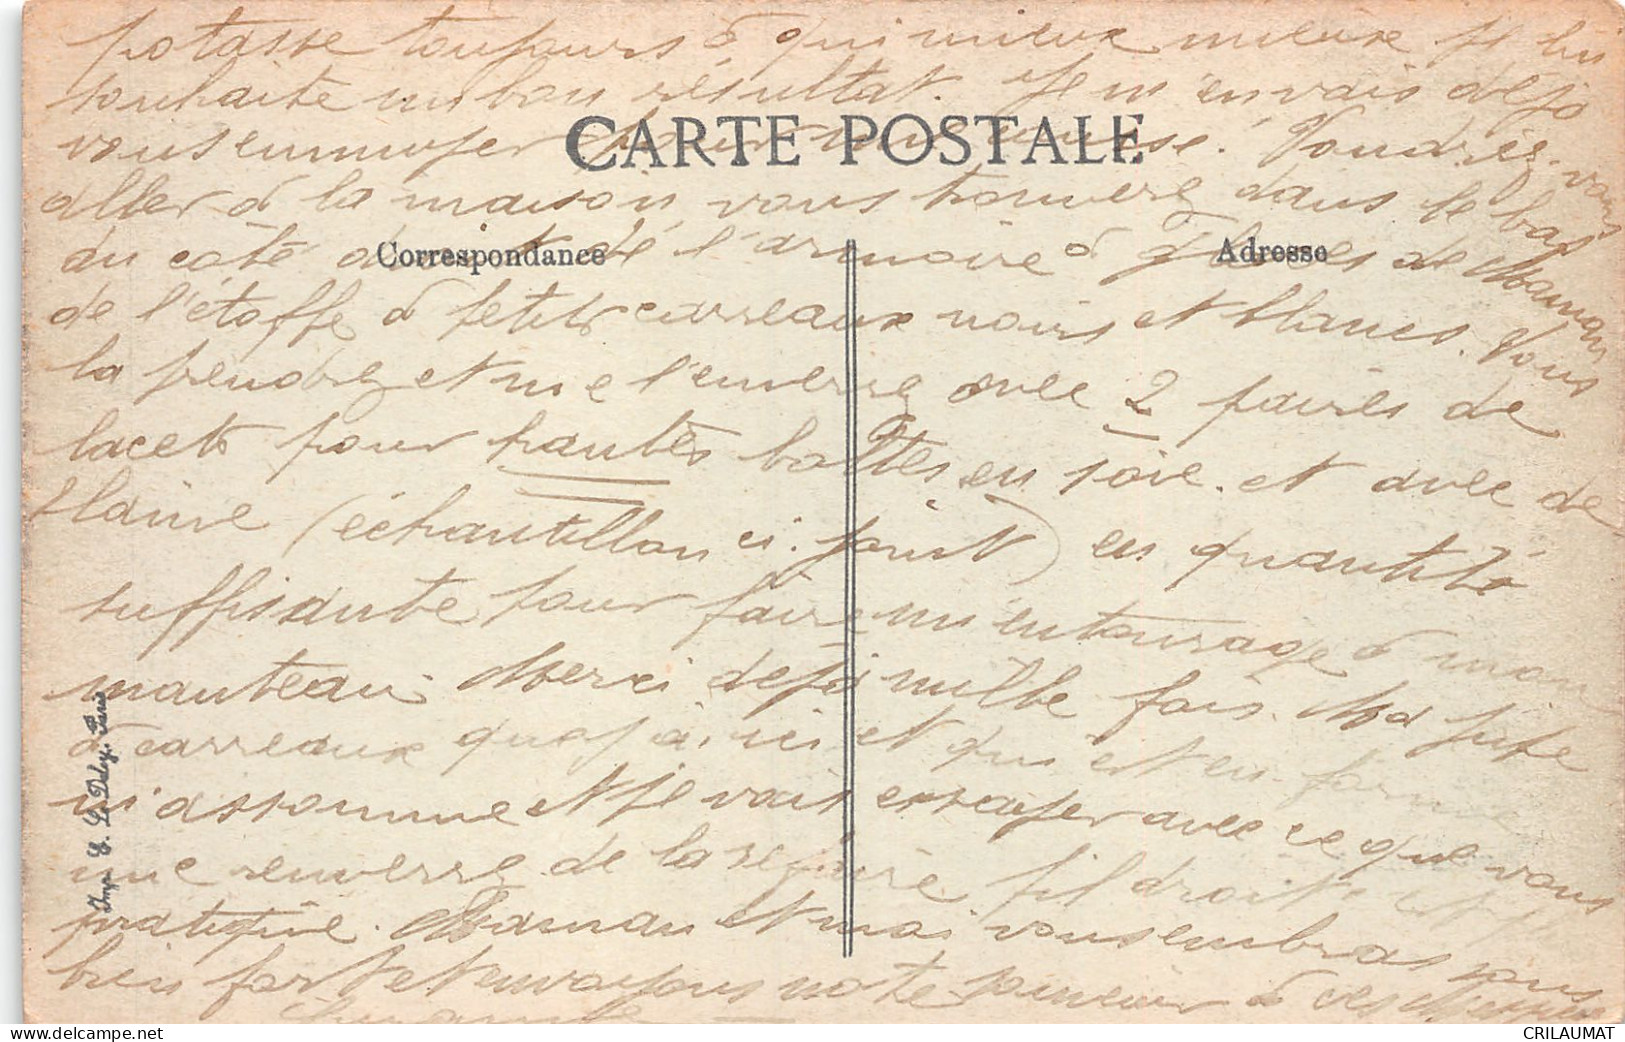 potasse toujours à qui mieux mieux je lui
souhaite un bon résultat. Je m'en vais déjà
vous ennuyer pour
CARTE POSTALE
Voudriez-vous
aller à la maison vous trouverez dans le bas
du côté droit de l'armoire à glaces de Maman
Correspondance
Adresse
de l'étoffe à petits carreaux noirs et blancs. Vous
la prendrez et me l'enverrez avec 2 paires de
lacets pour hautes bottes en soie. et avec de
laine (échantillon ci-joint) en quantité
suffisante pour faire un entourage à mon
manteau. Merci déjà mille fois. Ma jupe
à carreaux que j'ai ici et qui est en forme
m'assomme et je vais essayer avec ce que vous
me renverrez de la refaire fil droit et
pratique. Maman et moi vous embrassons
bien fort et envoyons notre souvenir à ces
Imp. E. Le Deley, Paris
CRILAUMAT